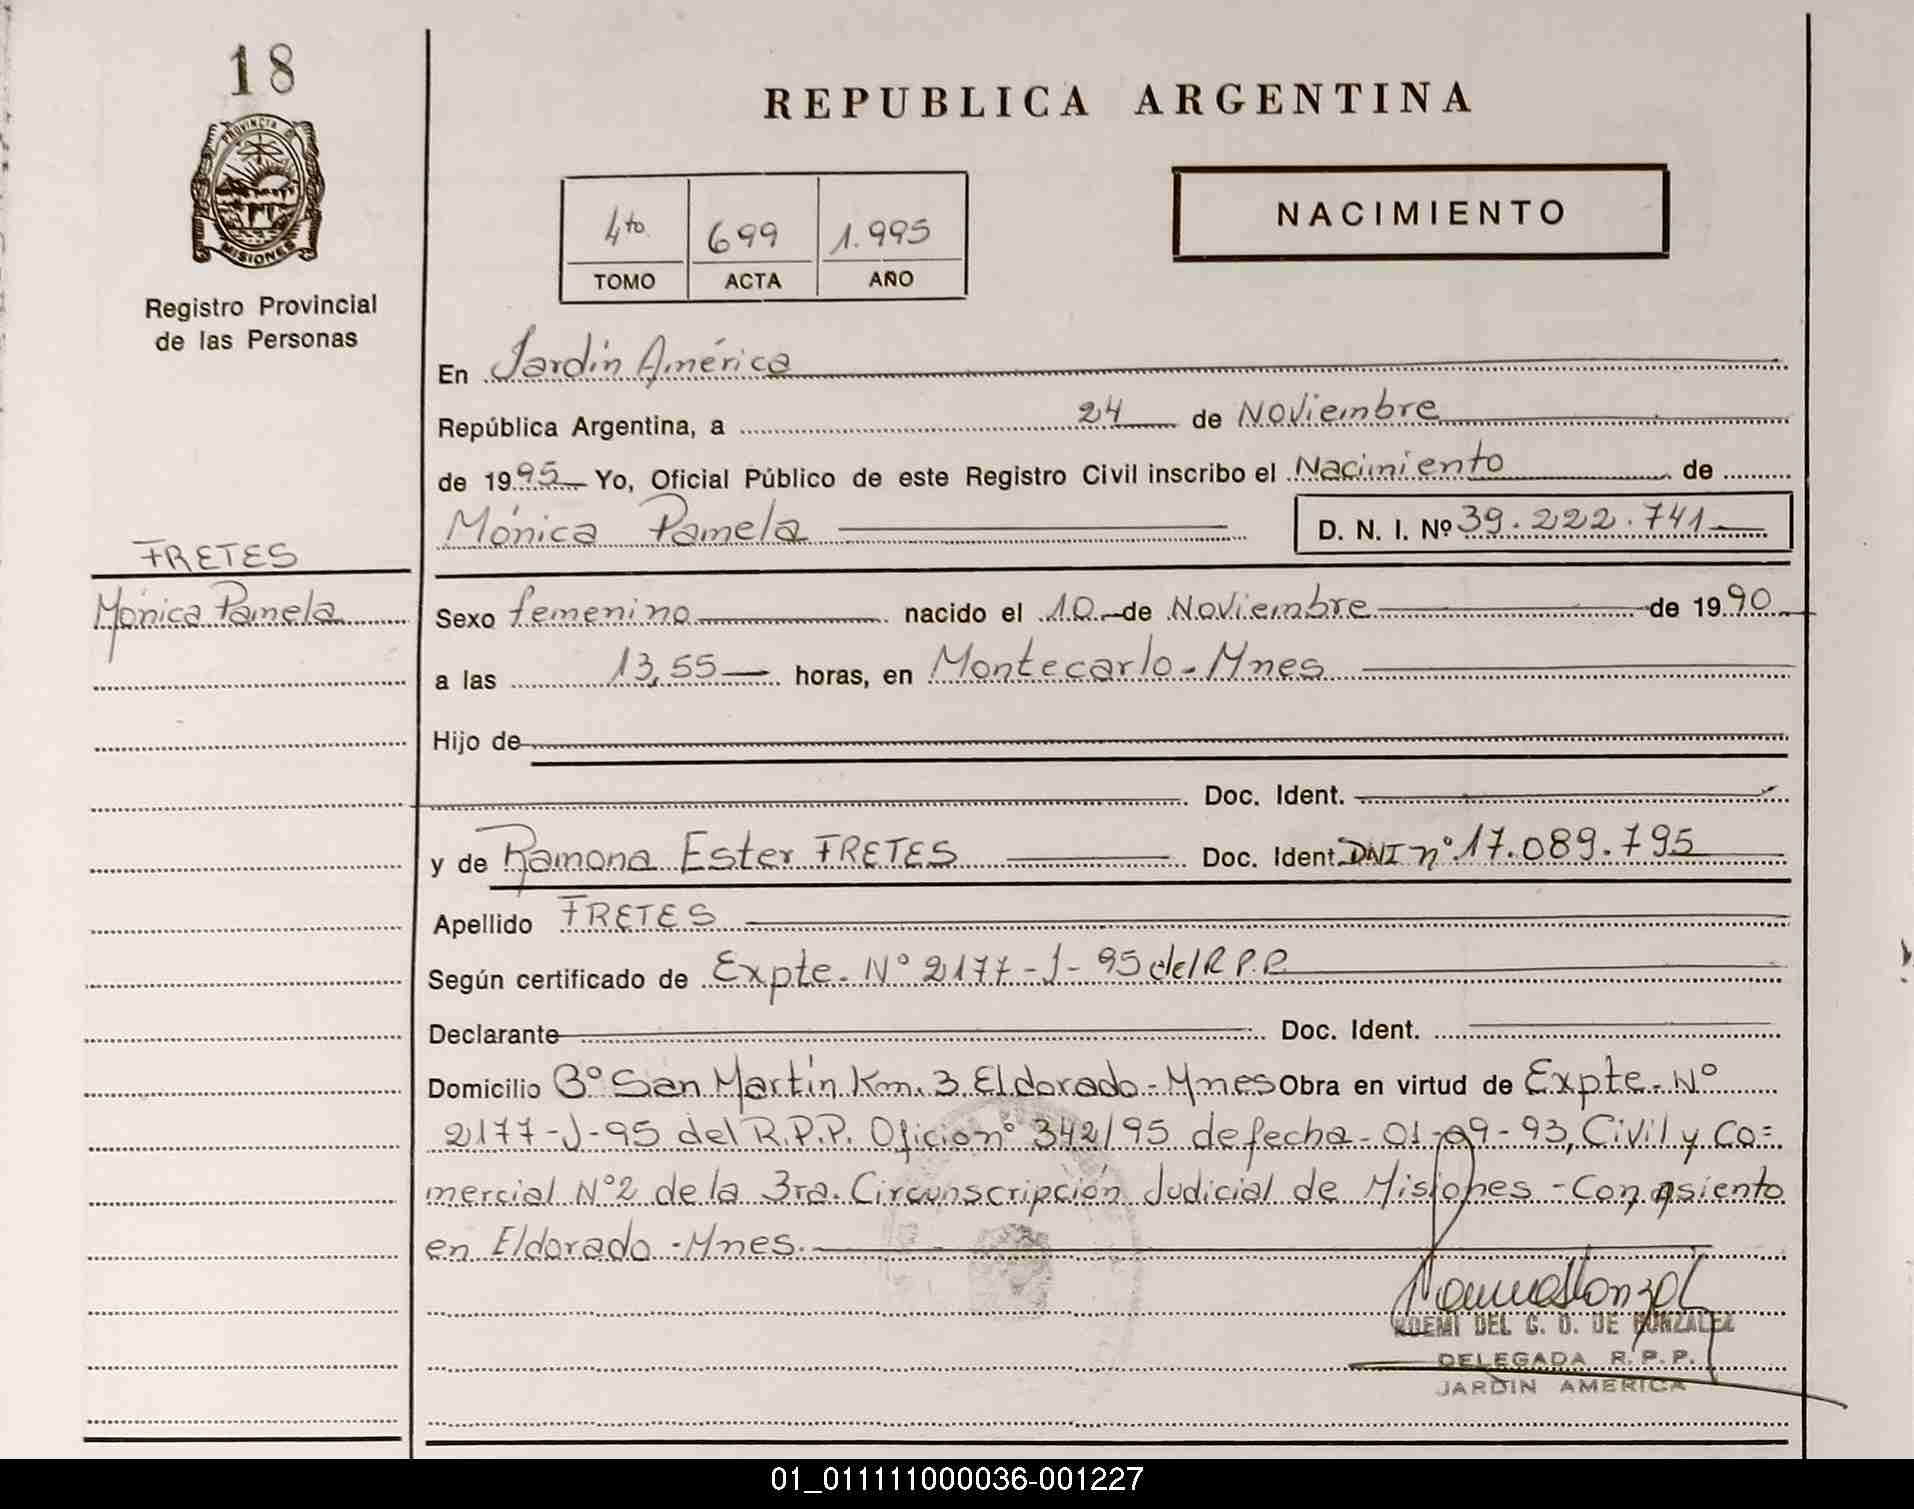 18
PROVINCIA DE
MISIONES
Registro Provincial
de las Personas
REPUBLICA ARGENTINA
4to 699 1.995
TOMO ACTA AÑO
NACIMIENTO
En Jardín América
República Argentina, a 24 de Noviembre
de 1995 Yo, Oficial Público de este Registro Civil inscribo el Nacimiento de
Mónica Pamela D. N. I. Nº 39.222.741
FRETES
Mónica Pamela
Sexo femenino nacido el 10 de Noviembre de 1990
a las 13,55 horas, en Montecarlo - Mnes
Hijo de
Doc. Ident.
y de Ramona Ester FRETES Doc. Ident. DNI nº 17.089.795
Apellido FRETES
Según certificado de Expte. Nº 2177-J-95 del R.P.P.
Declarante Doc. Ident.
Domicilio Bº San Martín Km. 3 Eldorado - Mnes Obra en virtud de Expte. Nº
2177-J-95 del R.P.P. Oficio nº 342/95 de fecha 01-09-93, Civil y Co=
mercial Nº2 de la 3ra. Circunscripción Judicial de Misiones - Con asiento
en Eldorado - Mnes.
NOEMI DEL C. O. DE GONZALEZ
DELEGADA R.P.P.
JARDIN AMERICA
01_011111000036-001227